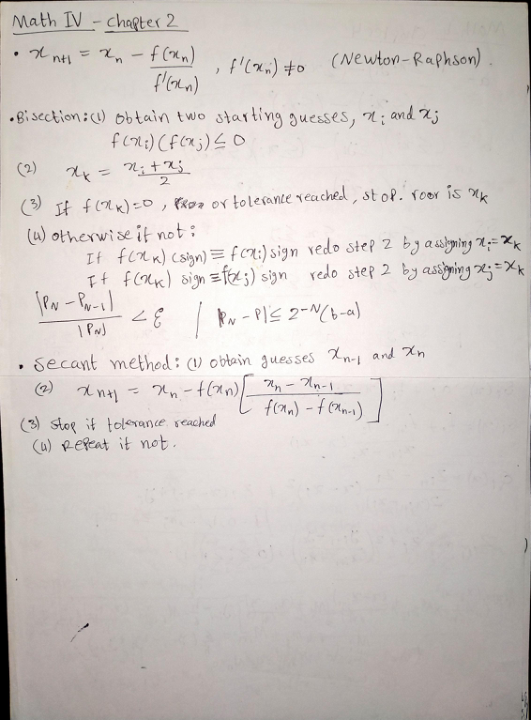 Math IV - Chapter 2
• x_{n+1} = x_n - f(x_n)/f'(x_n) , f'(x_n) ≠ 0 (Newton-Raphson)
• Bisection: (1) obtain two starting guesses, x_i and x_j
f(x_i)(f(x_j) ≤ 0
(2) x_k = (x_i + x_j)/2
(3) If f(x_k)=0, or tolerance reached, stop. root is x_k
(4) otherwise if not:
If f(x_k) (sign) ≡ f(x_i) sign redo step 2 by assigning x_i = x_k
If f(x_k) sign ≡ f(x_j) sign redo step 2 by assigning x_j = x_k
|P_N - P_{N-1}|/|P_N| < ε | |P_N - P| ≤ 2^{-N}(b-a)
• Secant method: (1) obtain guesses x_{n-1} and x_n
(2) x_{n+1} = x_n - f(x_n) [(x_n - x_{n-1})/(f(x_n) - f(x_{n-1}))]
(3) stop if tolerance reached
(4) Repeat if not.